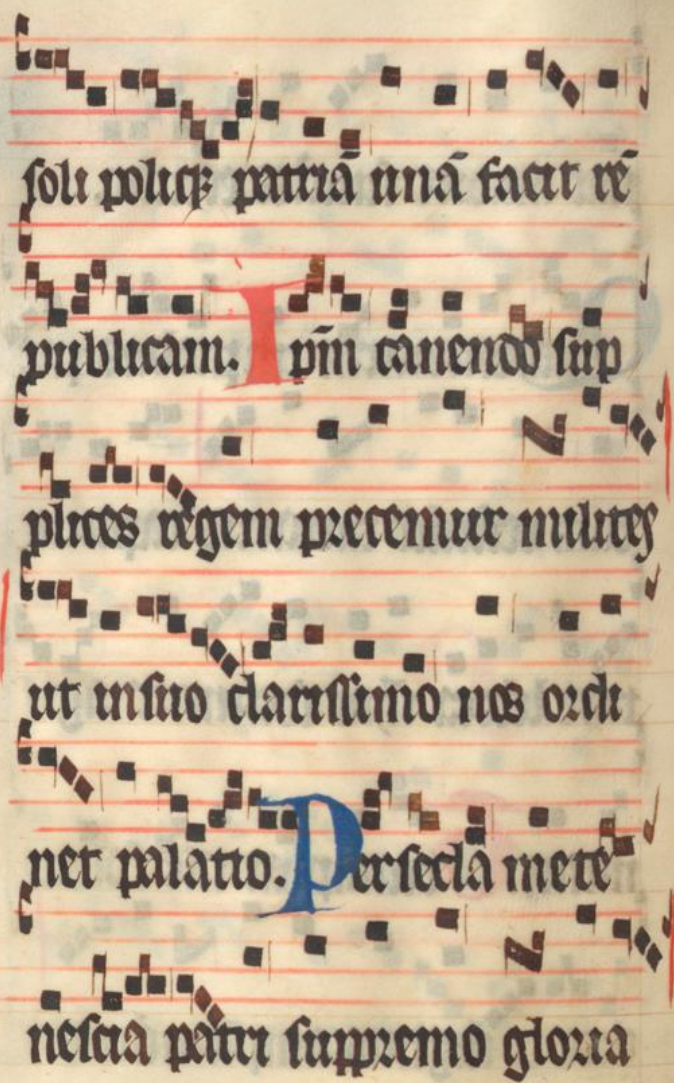 soli poliqꝫ patriā unā facit rē
publicam. Ip̄m canendo sup
plices regem precemur milites
ut in suo clarissimo nos ordi
net palatio. Per secla mete
nescia patri suppremo gloria